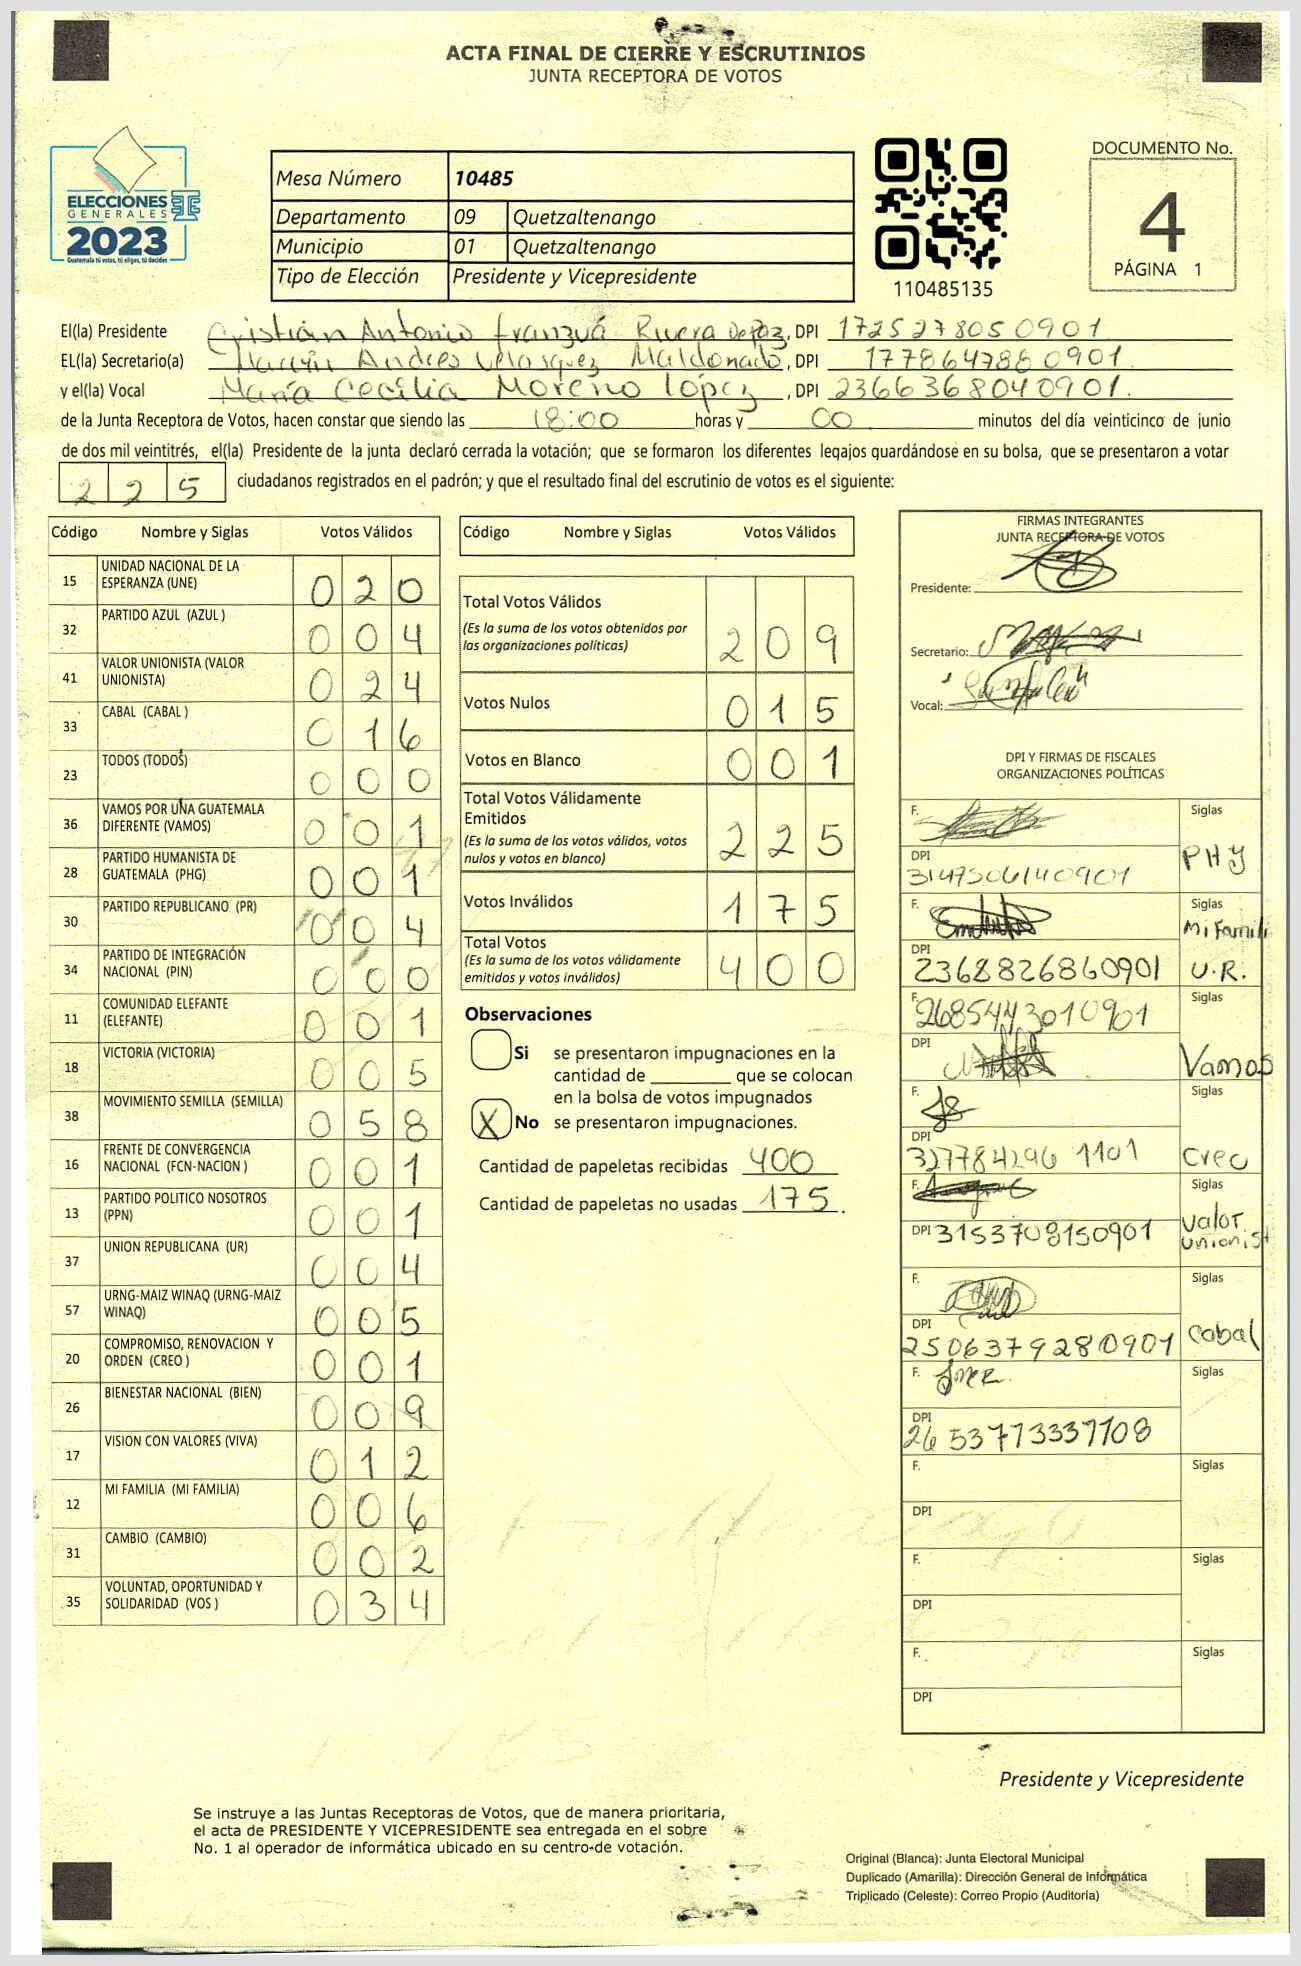 ACTA FINAL DE CIERRE Y ESCRUTINIOS
JUNTA RECEPTORA DE VOTOS
ELECCIONES
GENERALES
2023
Guatemala tú votas, tú eliges, tú decides
Mesa Número 10485
Departamento 09 Quetzaltenango
Municipio 01 Quetzaltenango
Tipo de Elección Presidente y Vicepresidente
110485135
DOCUMENTO No.
4
PÁGINA 1
El(la) Presidente Cristián Antonio Franzuá Rivera DePaz, DPI 1725278050901
EL(la) Secretario(a) Andres Velasquez Maldonado, DPI 1778647880901.
y el(la) Vocal María Cecilia Moreno López, DPI 2366368040901.
de la Junta Receptora de Votos, hacen constar que siendo las 18:00 horas y 00 minutos del día veinticinco de junio
de dos mil veintitrés, el(la) Presidente de la junta declaró cerrada la votación; que se formaron los diferentes legajos guardándose en su bolsa, que se presentaron a votar
225 ciudadanos registrados en el padrón; y que el resultado final del escrutinio de votos es el siguiente:
Código Nombre y Siglas Votos Válidos
15 UNIDAD NACIONAL DE LA ESPERANZA (UNE) 020
32 PARTIDO AZUL (AZUL ) 004
41 VALOR UNIONISTA (VALOR UNIONISTA) 024
33 CABAL (CABAL ) 016
23 TODOS (TODOS) 000
36 VAMOS POR UNA GUATEMALA DIFERENTE (VAMOS) 001
28 PARTIDO HUMANISTA DE GUATEMALA (PHG) 001
30 PARTIDO REPUBLICANO (PR) 004
34 PARTIDO DE INTEGRACIÓN NACIONAL (PIN) 000
11 COMUNIDAD ELEFANTE (ELEFANTE) 001
18 VICTORIA (VICTORIA) 005
38 MOVIMIENTO SEMILLA (SEMILLA) 058
16 FRENTE DE CONVERGENCIA NACIONAL (FCN-NACION ) 001
13 PARTIDO POLITICO NOSOTROS (PPN) 001
37 UNION REPUBLICANA (UR) 004
57 URNG-MAIZ WINAQ (URNG-MAIZ WINAQ) 005
20 COMPROMISO, RENOVACION Y ORDEN (CREO ) 001
26 BIENESTAR NACIONAL (BIEN) 009
17 VISION CON VALORES (VIVA) 012
12 MI FAMILIA (MI FAMILIA) 006
31 CAMBIO (CAMBIO) 002
35 VOLUNTAD, OPORTUNIDAD Y SOLIDARIDAD (VOS ) 034
Código Nombre y Siglas Votos Válidos
Total Votos Válidos 209
(Es la suma de los votos obtenidos por las organizaciones políticas)
Votos Nulos 015
Votos en Blanco 001
Total Votos Válidamente Emitidos 225
(Es la suma de los votos válidos, votos nulos y votos en blanco)
Votos Inválidos 175
Total Votos 400
(Es la suma de los votos válidamente emitidos y votos inválidos)
Observaciones
Si se presentaron impugnaciones en la
cantidad de ________ que se colocan
en la bolsa de votos impugnados
X No se presentaron impugnaciones.
Cantidad de papeletas recibidas 400
Cantidad de papeletas no usadas 175.
FIRMAS INTEGRANTES
JUNTA RECEPTORA DE VOTOS
Presidente:
Secretario:
Vocal:
DPI Y FIRMAS DE FISCALES
ORGANIZACIONES POLÍTICAS
F. Siglas
DPI 3147306140901 PHG
F. Siglas Mi Famili
DPI 2368826860901 U.R.
F. 2685443010901 Siglas
DPI Vamos
F. Siglas
DPI 327784296 1101 Creo
F. Siglas
DPI 3153708150901 Valor Unionist
F. Siglas
DPI 2506379280901 Cabal
F. Siglas
DPI 2653773337108
F. Siglas
DPI
F. Siglas
DPI
F. Siglas
DPI
Presidente y Vicepresidente
Se instruye a las Juntas Receptoras de Votos, que de manera prioritaria,
el acta de PRESIDENTE Y VICEPRESIDENTE sea entregada en el sobre
No. 1 al operador de informática ubicado en su centro de votación.
Original (Blanca): Junta Electoral Municipal
Duplicado (Amarilla): Dirección General de Informática
Triplicado (Celeste): Correo Propio (Auditoría)